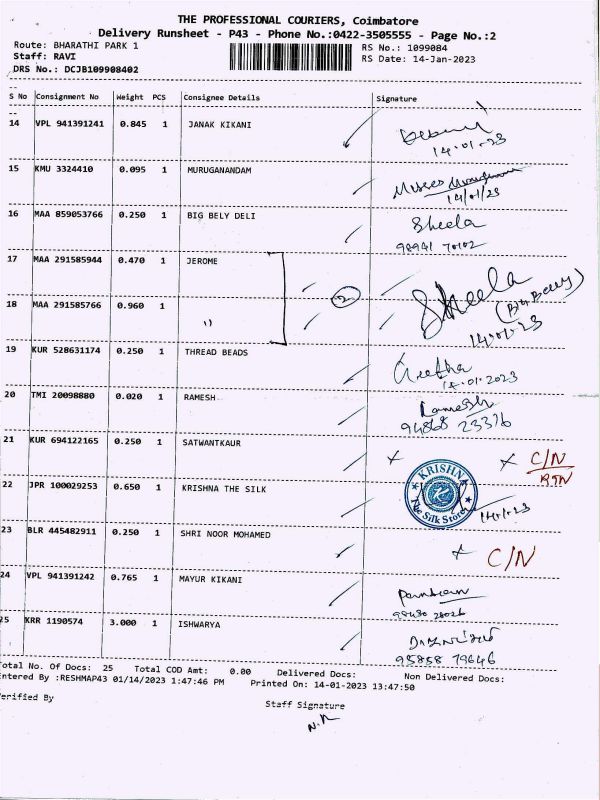 THE PROFESSIONAL COURIERS, Coimbatore
Delivery Runsheet - P43 - Phone No.:0422-3505555 - Page No.:2
Route: BHARATHI PARK 1
RS No.: 1099084
Staff: RAVI
RS Date: 14-Jan-2023
DRS No.: DCJB109908402
S No Consignment No Weight PCS Consignee Details Signature
14 VPL 941391241 0.845 1 JANAK KIKANI
14.01.23
15 KMU 3324410 0.095 1 MURUGANANDAM
14/01/23
16 MAA 859053766 0.250 1 BIG BELY DELI Sheela
98941 70102
17 MAA 291585944 0.470 1 JEROME
2 Sheela
18 MAA 291585766 0.960 1 "
14.01.23
19 KUR 528631174 0.250 1 THREAD BEADS Geetha
14.01.2023
20 TMI 20098880 0.020 1 RAMESH Ramesh
94868 23376
21 KUR 694122165 0.250 1 SATWANTKAUR x x C/N
RTN
22 JPR 100029253 0.650 1 KRISHNA THE SILK KRISHNA The Silk Store
14/1/23
23 BLR 445482911 0.250 1 SHRI NOOR MOHAMED x C/N
24 VPL 941391242 0.765 1 MAYUR KIKANI
25 KRR 1190574 3.000 1 ISHWARYA
95858 79646
Total No. Of Docs: 25 Total COD Amt: 0.00 Delivered Docs: Non Delivered Docs:
Entered By :RESHMAP43 01/14/2023 1:47:46 PM Printed On: 14-01-2023 13:47:50
Verified By
Staff Signature